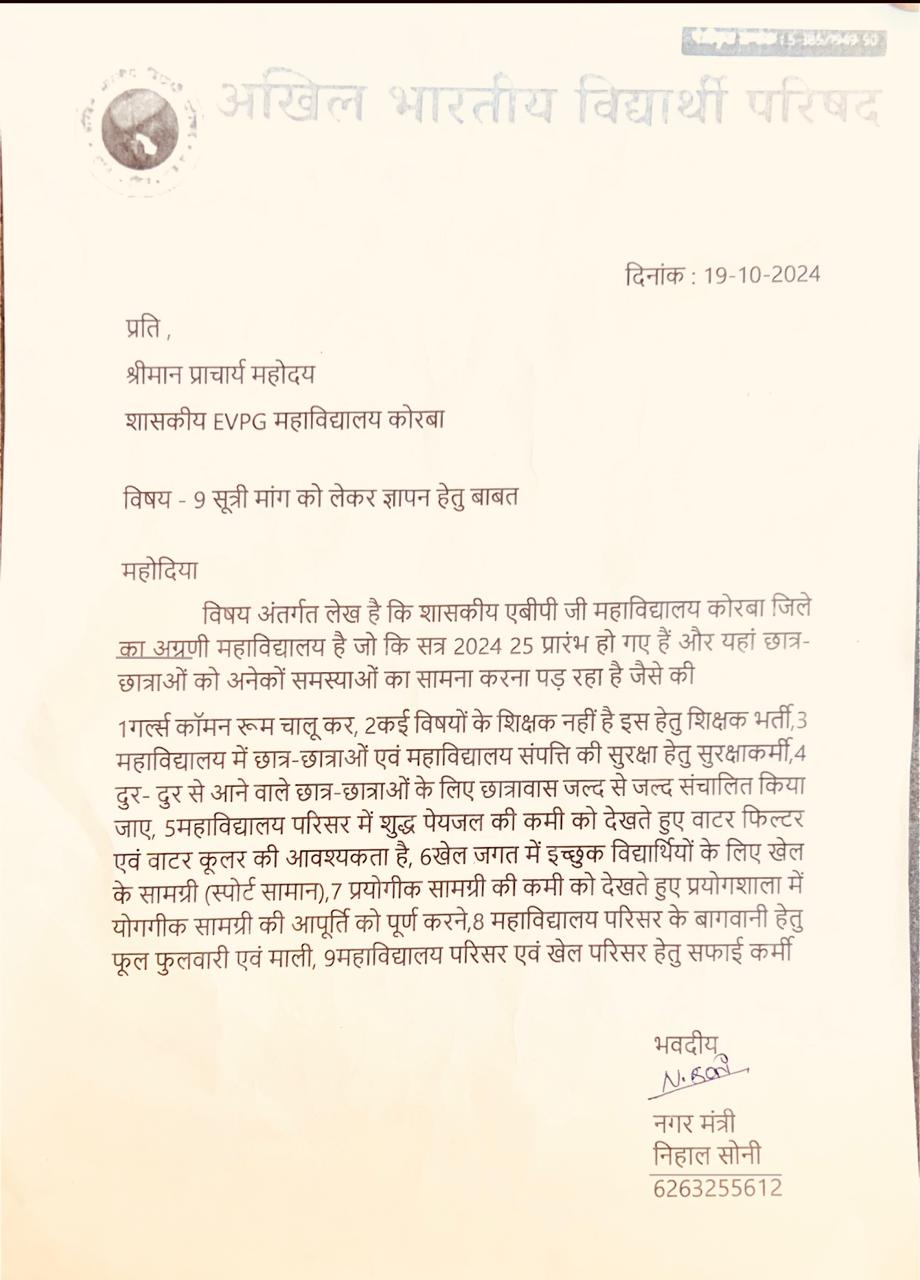 S-385/1949-50
अखिल भारतीय विद्यार्थी परिषद
दिनांक : 19-10-2024
प्रति ,
श्रीमान प्राचार्य महोदय
शासकीय EVPG महाविद्यालय कोरबा
विषय - 9 सूत्री मांग को लेकर ज्ञापन हेतु बाबत
महोदिया
विषय अंतर्गत लेख है कि शासकीय एबीपी जी महाविद्यालय कोरबा जिले
का अग्रणी महाविद्यालय है जो कि सत्र 2024 25 प्रारंभ हो गए हैं और यहां छात्र-
छात्राओं को अनेकों समस्याओं का सामना करना पड़ रहा है जैसे की
1गर्ल्स कॉमन रूम चालू कर, 2कई विषयों के शिक्षक नहीं है इस हेतु शिक्षक भर्ती,3
महाविद्यालय में छात्र-छात्राओं एवं महाविद्यालय संपत्ति की सुरक्षा हेतु सुरक्षाकर्मी,4
दुर- दुर से आने वाले छात्र-छात्राओं के लिए छात्रावास जल्द से जल्द संचालित किया
जाए, 5महाविद्यालय परिसर में शुद्ध पेयजल की कमी को देखते हुए वाटर फिल्टर
एवं वाटर कूलर की आवश्यकता है, 6खेल जगत में इच्छुक विद्यार्थियों के लिए खेल
के सामग्री (स्पोर्ट सामान),7 प्रयोगीक सामग्री की कमी को देखते हुए प्रयोगशाला में
योगगीक सामग्री की आपूर्ति को पूर्ण करने,8 महाविद्यालय परिसर के बागवानी हेतु
फूल फुलवारी एवं माली, 9महाविद्यालय परिसर एवं खेल परिसर हेतु सफाई कर्मी
भवदीय
N. Soni
नगर मंत्री
निहाल सोनी
6263255612